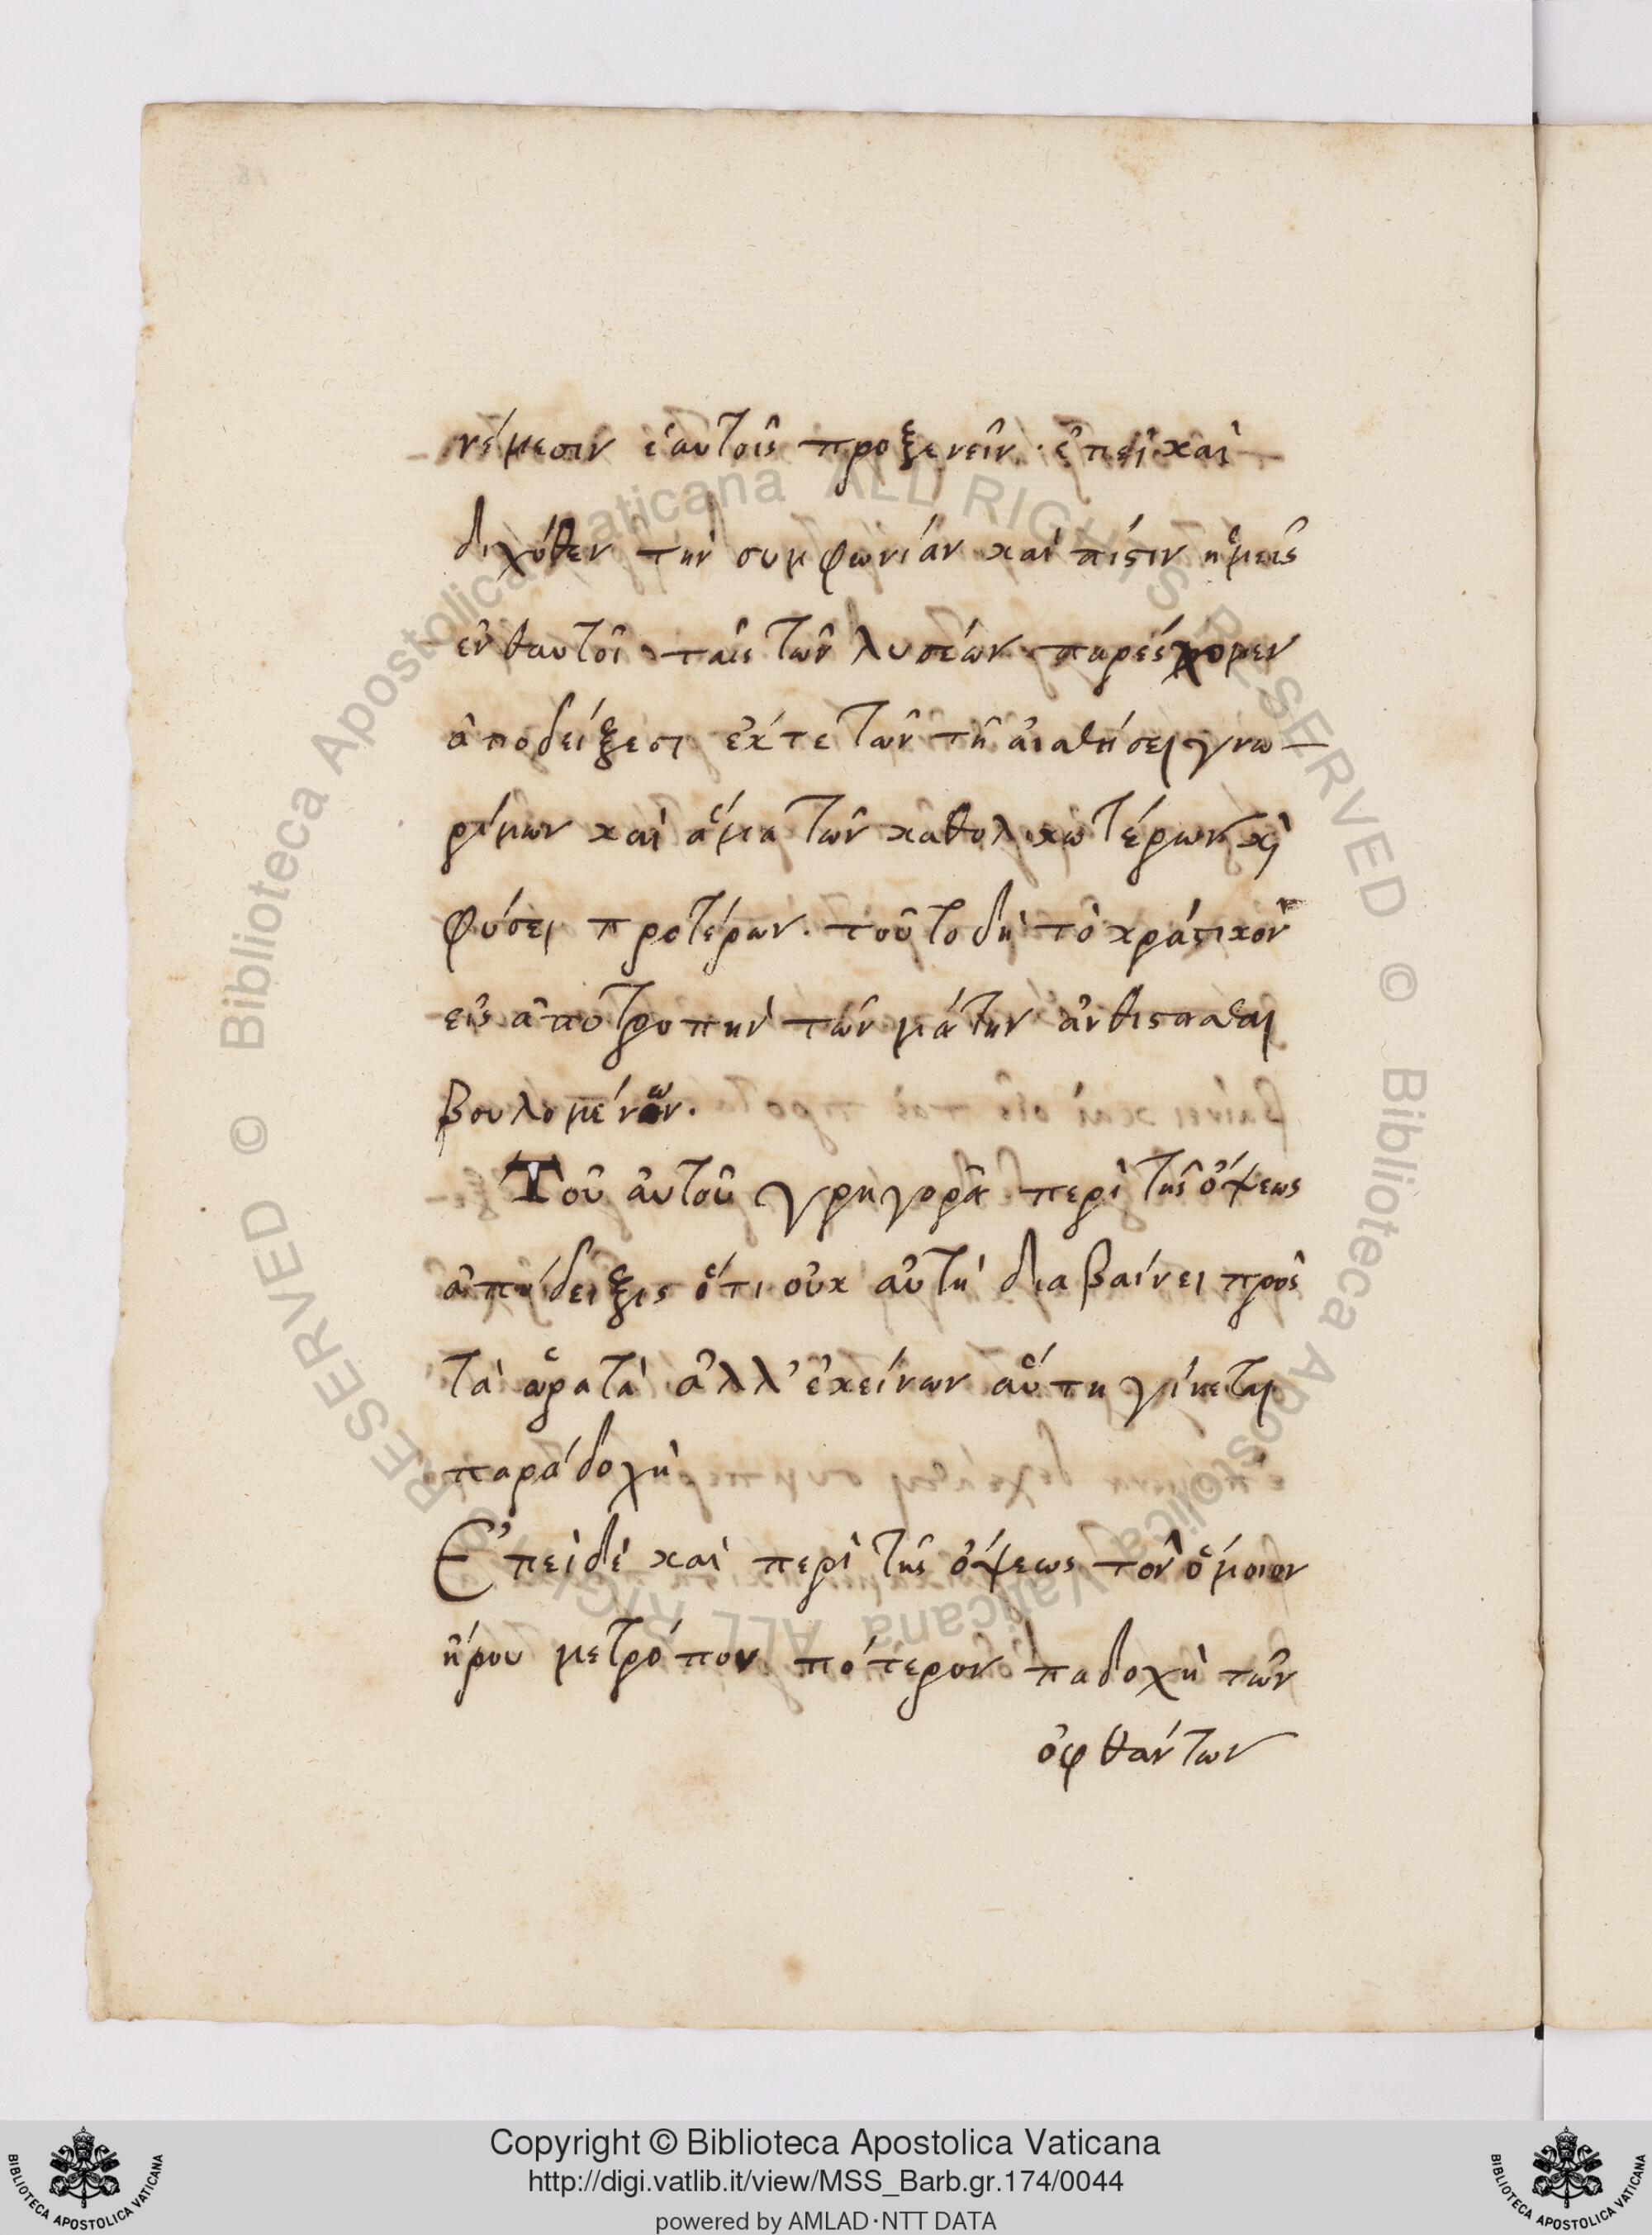 νέμεσιν ἑαυτοῖς προξενεῖν· ἐπεὶ καὶ
διχόθεν τὴν συμφωνίαν καὶ πίστιν ἡμεῖς
ἐνθαυτοῖ ταῖς τῶν λυσέων παρέχομεν
ἀποδείξεσι ἔκτε τῶν τῆ αἰσθήσει γνω-
ρίμων καὶ ἅμα τῶν καθολικωτέρων κὶ
φύσει προτέρων. τοῦτο δὴ τὸ κράτικὸν
εἰς ἀποτροπὴν τῶν μάτην ἀνθίστασθαι
βουλομένων.
Τοῦ αὐτοῦ γρηγορᾶ περὶ τῆς ὄψεως
ἀπόδειξις ὅτι οὐκ αὐτὴ διαβαίνει πρὸς
τὰ ὡρατὰ ἀλλ' ἐκείνων αὕτη γίνεται
παράδοχὴ
Ἐπεὶδὲ καὶ περὶ τῆς ὄψεως τὸν ὅμοιον
ἤρου μετρόπον πότερον παδοχὴ τῶν
ὀφθάντων
Copyright © Biblioteca Apostolica Vaticana
http://digi.vatlib.it/view/MSS_Barb.gr.174/0044
powered by AMLAD·NTT DATA
BIBLIOTECA APOSTOLICA VATICANA
BIBLIOTECA APOSTOLICA VATICANA
© Biblioteca Apostolica Vaticana ALL RIGHTS RESERVED
© Biblioteca Apostolica Vaticana ALL RIGHTS RESERVED